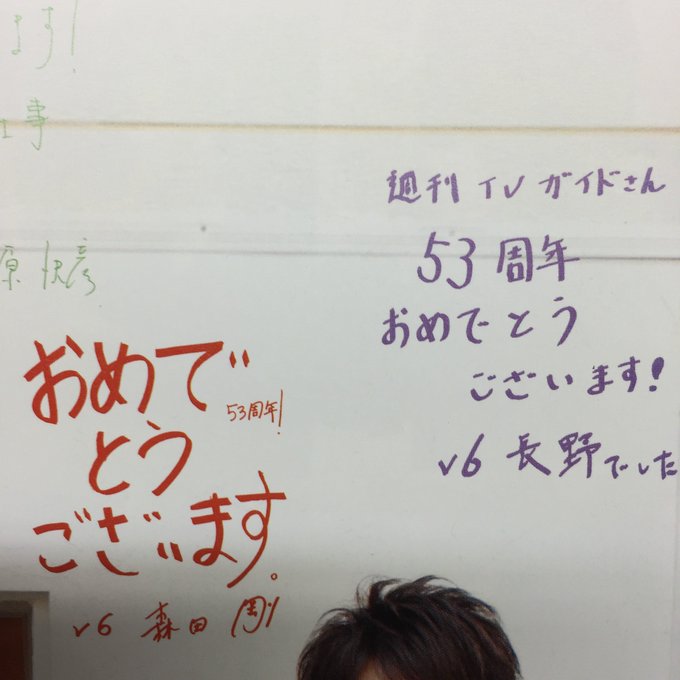 ます!
事
原 快彦
週刊TVガイドさん
53周年
おめでとう
ございます!
V6 長野でした
おめで
53周年!
とう
ございます。
V6 森田 剛